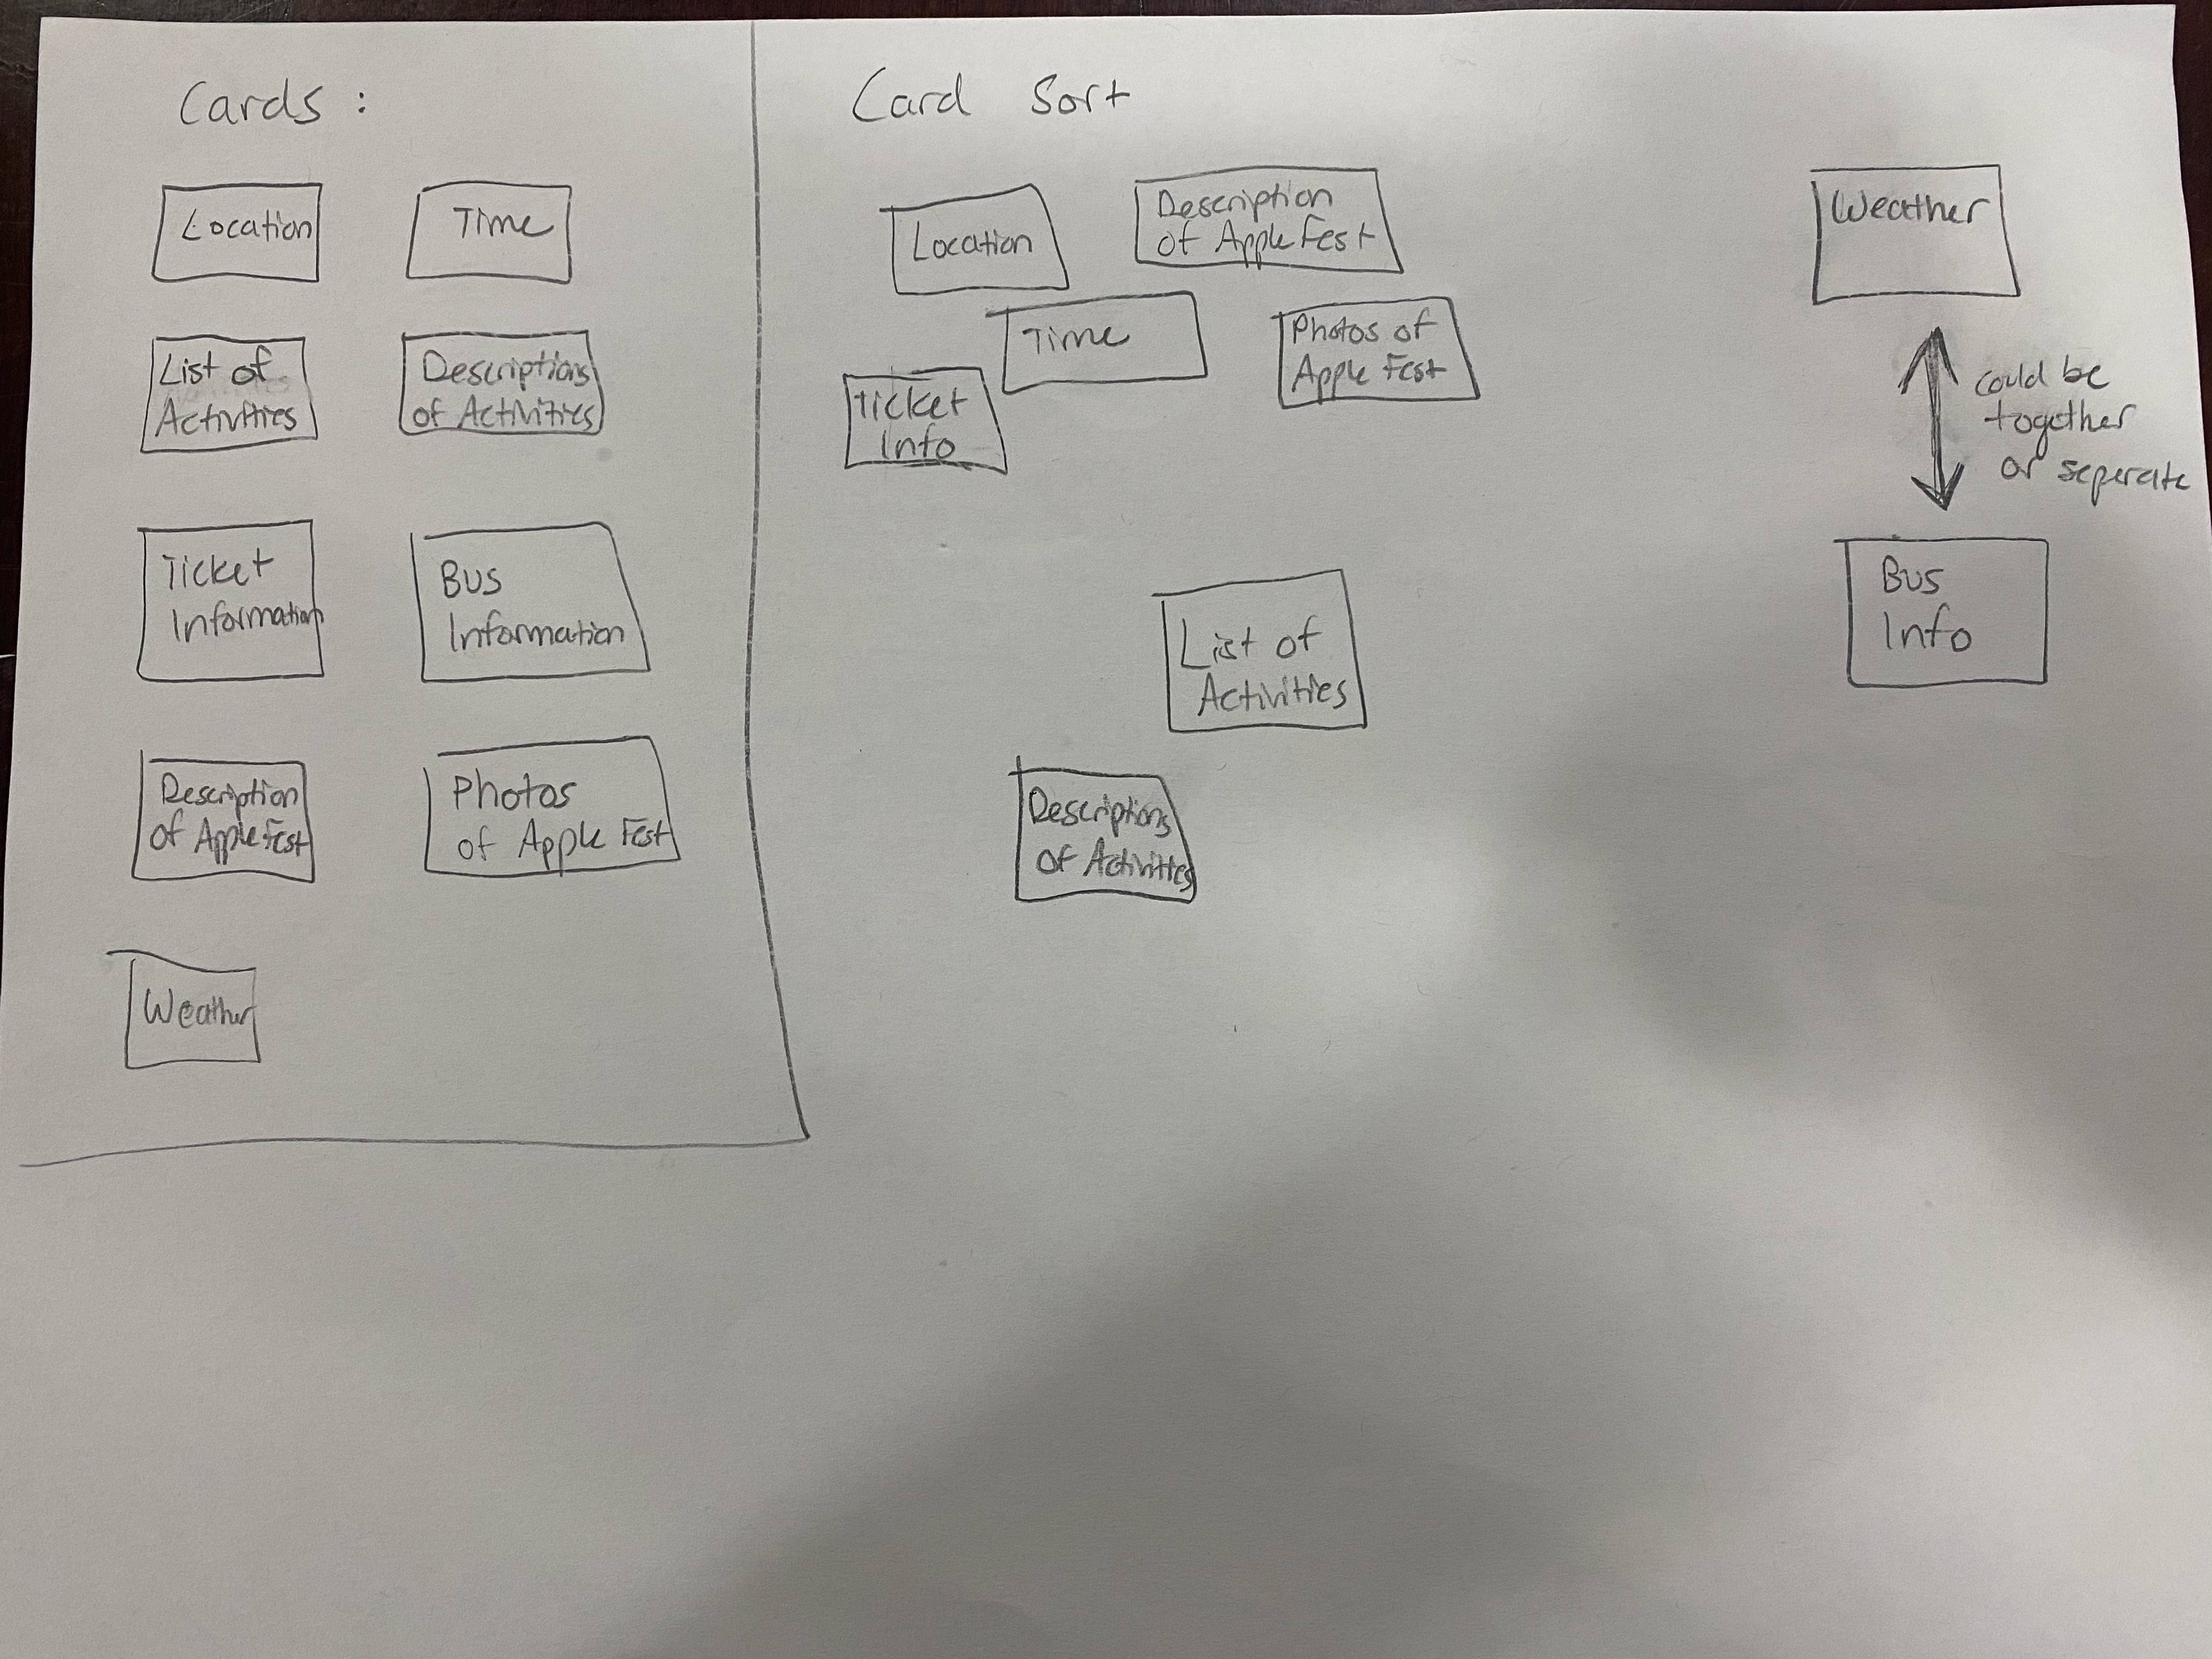 Cards :
Location
Time
List of
Activities
Descriptions
of Activities
Ticket
Information
Bus
Information
Description
of Apple Fest
Photos
of Apple Fest
Weather
Card Sort
Location
Description
of Apple Fest
Time
Photos of
Apple Fest
Ticket
Info
List of
Activities
Descriptions
of Activities
Weather
could be
together
or seperate
Bus
Info